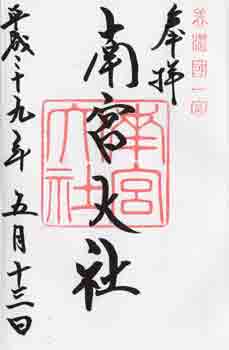 美濃國一宮
奉拝
南宮大社
南宮大社
平成二十九年五月十三日